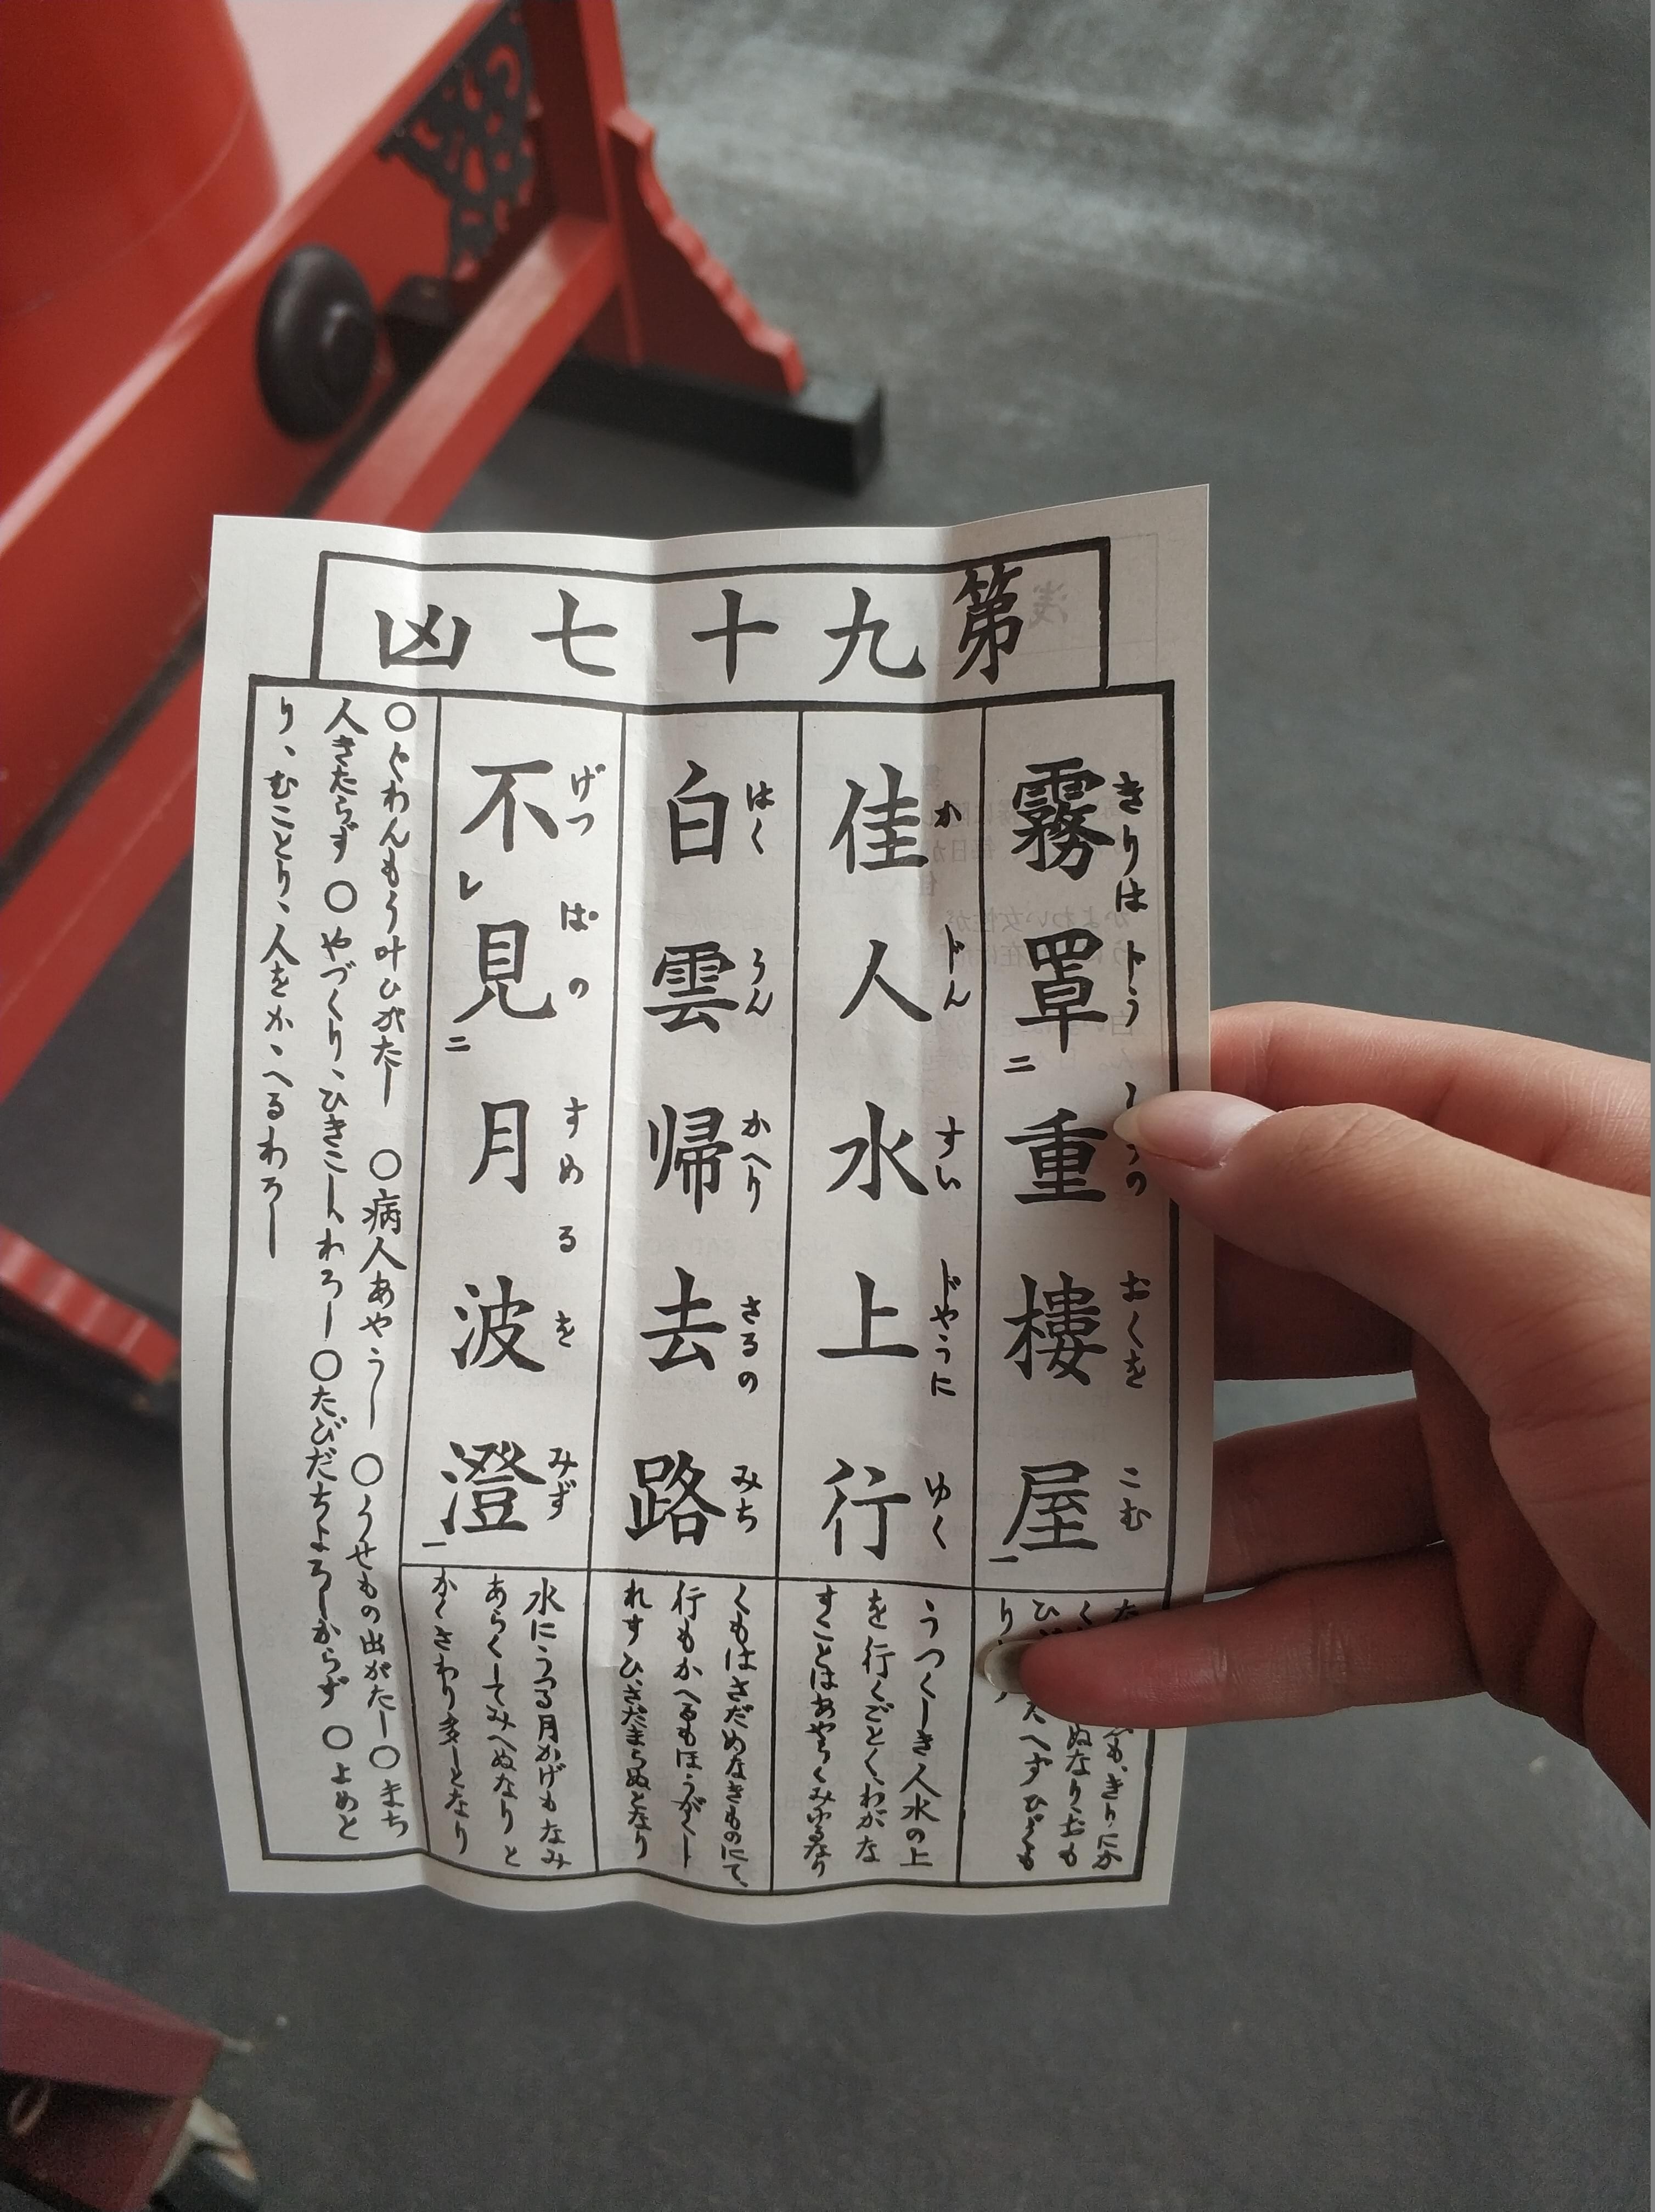 第九十七凶
霧罩重樓屋
きりは トう の おくを こむ
佳人水上行
か ドん すい ドやうに ゆく
白雲帰去路
はく うん かへり さるの みち
不見月波澄
げつ ぱの すめるを みず
うつくしき人水の上
を行くごとくわがな
すことはあやうくみゆるなり
くもはさだめなきものにて、
行もかへるもほうがくし
れすひさだまらぬとなり
水にうつる月かげもなみ
あらくしてみへぬなりと
かくさわり多しとなり
○ぐわんもう叶ひがたし ○病人あやうし ○うせもの出がたし○まち
人きたらず ○やづくり、ひきこしわろし ○たびだちよろしからず ○よめと
り、むことり、人をかゝへるわろし